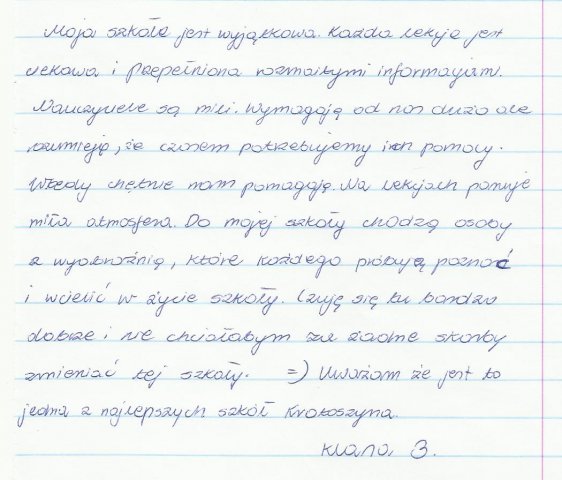 Moja szkoła jest wyjątkowa. Każda lekcja jest
ciekawa i przepełniona rozmaitymi informacjami.
Nauczyciele są mili. Wymagają od nas dużo ale
rozumieją, że czasem potrzebujemy ich pomocy.
Wtedy chętnie nam pomagają. Na lekcjach panuje
miła atmosfera. Do mojej szkoły chodzą osoby
z wyobraźnią, które każdego próbują poznać
i wcielić w życie szkoły. Czuję się tu bardzo
dobrze i nie chciałabym za żadne skarby
zmieniać tej szkoły. =) Uważam że jest to
jedna z najlepszych szkół Krotoszyna.
Klara B.